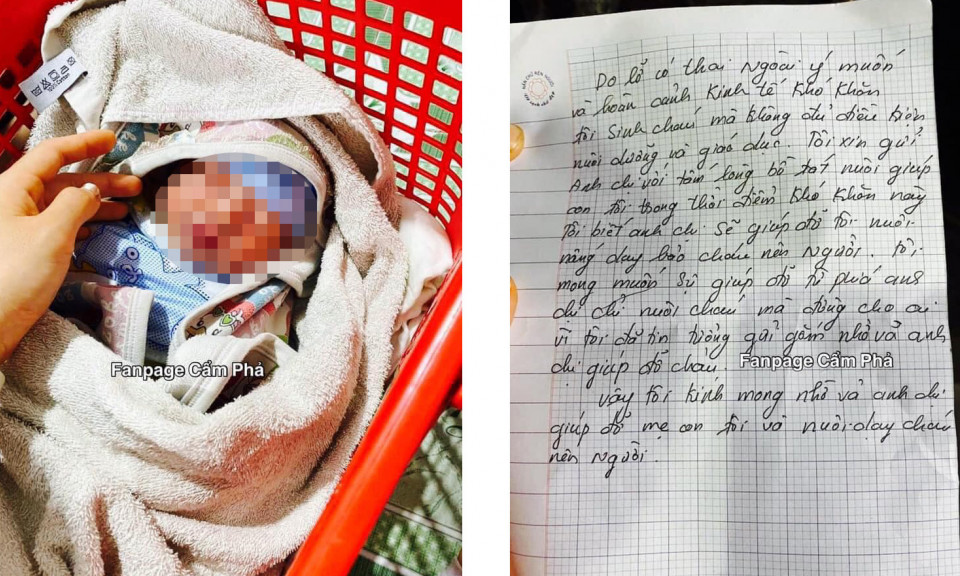 Fanpage Cẩm Phả
Do lỡ có thai Ngoài ý muốn
và hoàn cảnh Kinh tế khó khăn
tôi sinh cháu mà không đủ điều kiện
nuôi dưỡng và giáo dục. Tôi xin gửi
Anh chị với tấm lòng bồ tát nuôi giúp
con tôi trong thời điểm khó khăn này
tôi biết anh chị sẽ giúp đỡ tôi nuôi
nấng dạy bảo cháu nên người. Tôi
mong muốn sự giúp đỡ từ phía anh
chị chỉ nuôi cháu mà đừng cho ai
vì tôi đã tin tưởng gửi gắm nhờ vả anh
chị giúp đỡ cháu.
Fanpage Cẩm Phả
Vậy tôi kính mong nhờ vả anh chị
giúp đỡ mẹ con tôi và nuôi dạy cháu
nên người.